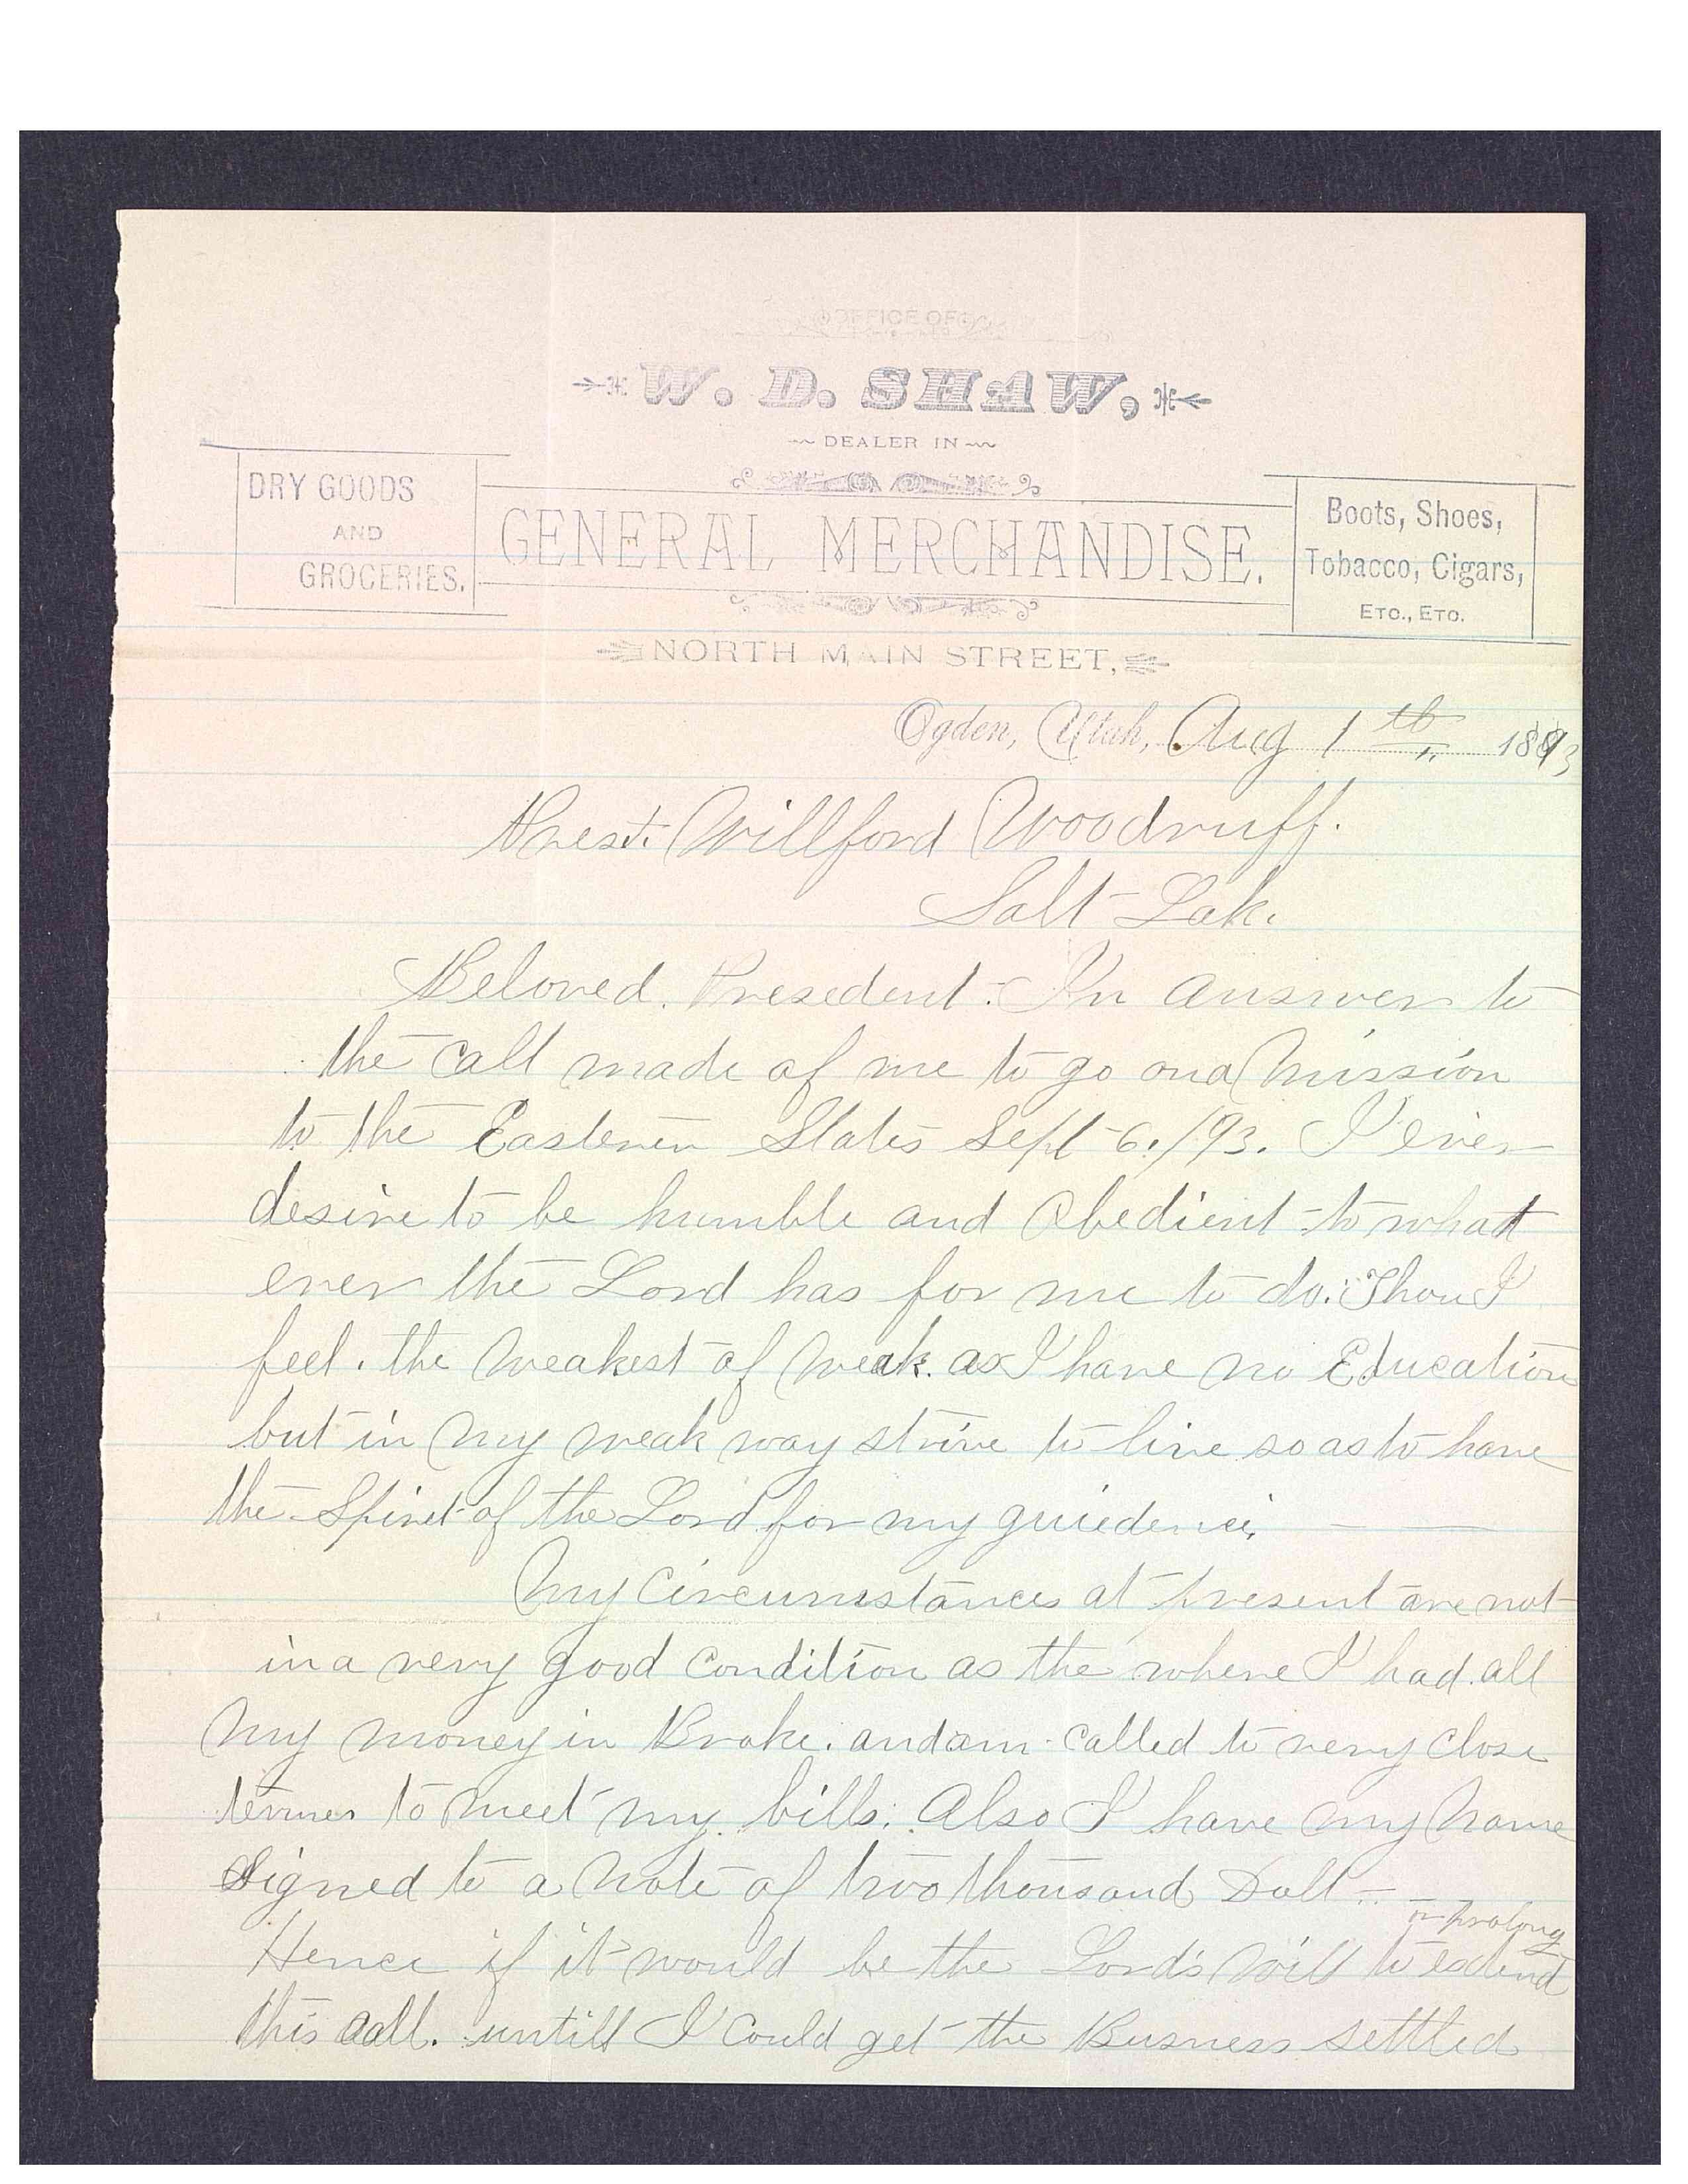 OFFICE OF
W. D. SHAW,
DEALER IN
DRY GOODS
AND
GROCERIES.
GENERAL MERCHANDISE.
Boots, Shoes,
Tobacco, Cigars,
ETC., ETC.
NORTH MAIN STREET,
Ogden, Utah, Aug 1th 1893
Prest. Willford Woodruff.
Salt Lake.
Beloved. Presedent. In answer to
the call made of me to go on a Mission
to the Eastern States Sept 6./93. I ever
desire to be humble and obedient to what
ever the Lord has for me to do. Thou I
feel. the weakest of weak. as I have no Education
but in my weak way strive to live so as to have
the Spirit of the Lord for my guiedence,
My Circumstances at present are not
in a very good condition as the where I had all
my money in Broke. and am called to very close
termes to meet my bills. Also I have my Name
Signed to a Note of two thousand Doll
or prolong
Hence if it would be the Lord's Will to extend
this call. untill I could get the Busness settled